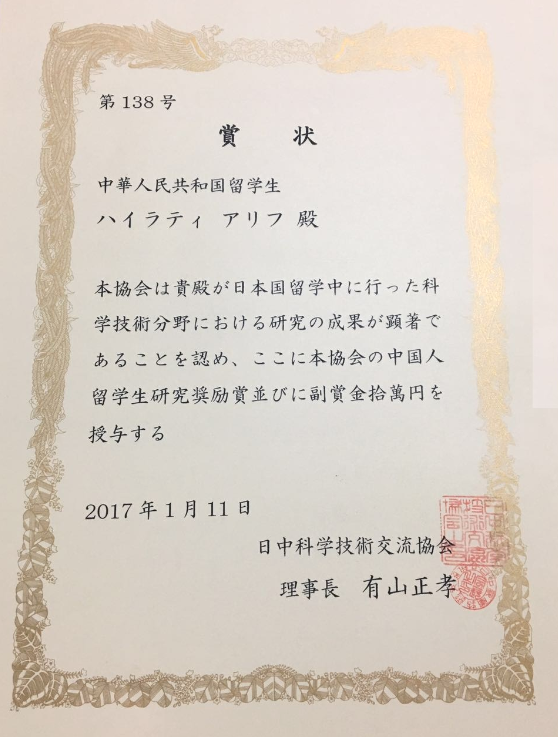 第138号
賞 状
中華人民共和国留学生
ハイラティ アリフ 殿
本協会は貴殿が日本国留学中に行った科
学技術分野における研究の成果が顕著で
あることを認め、ここに本協会の中国人
留学生研究奨励賞並びに副賞金拾萬円を
授与する
2017年1月11日
日中科学技術交流協会
理事長 有山正孝